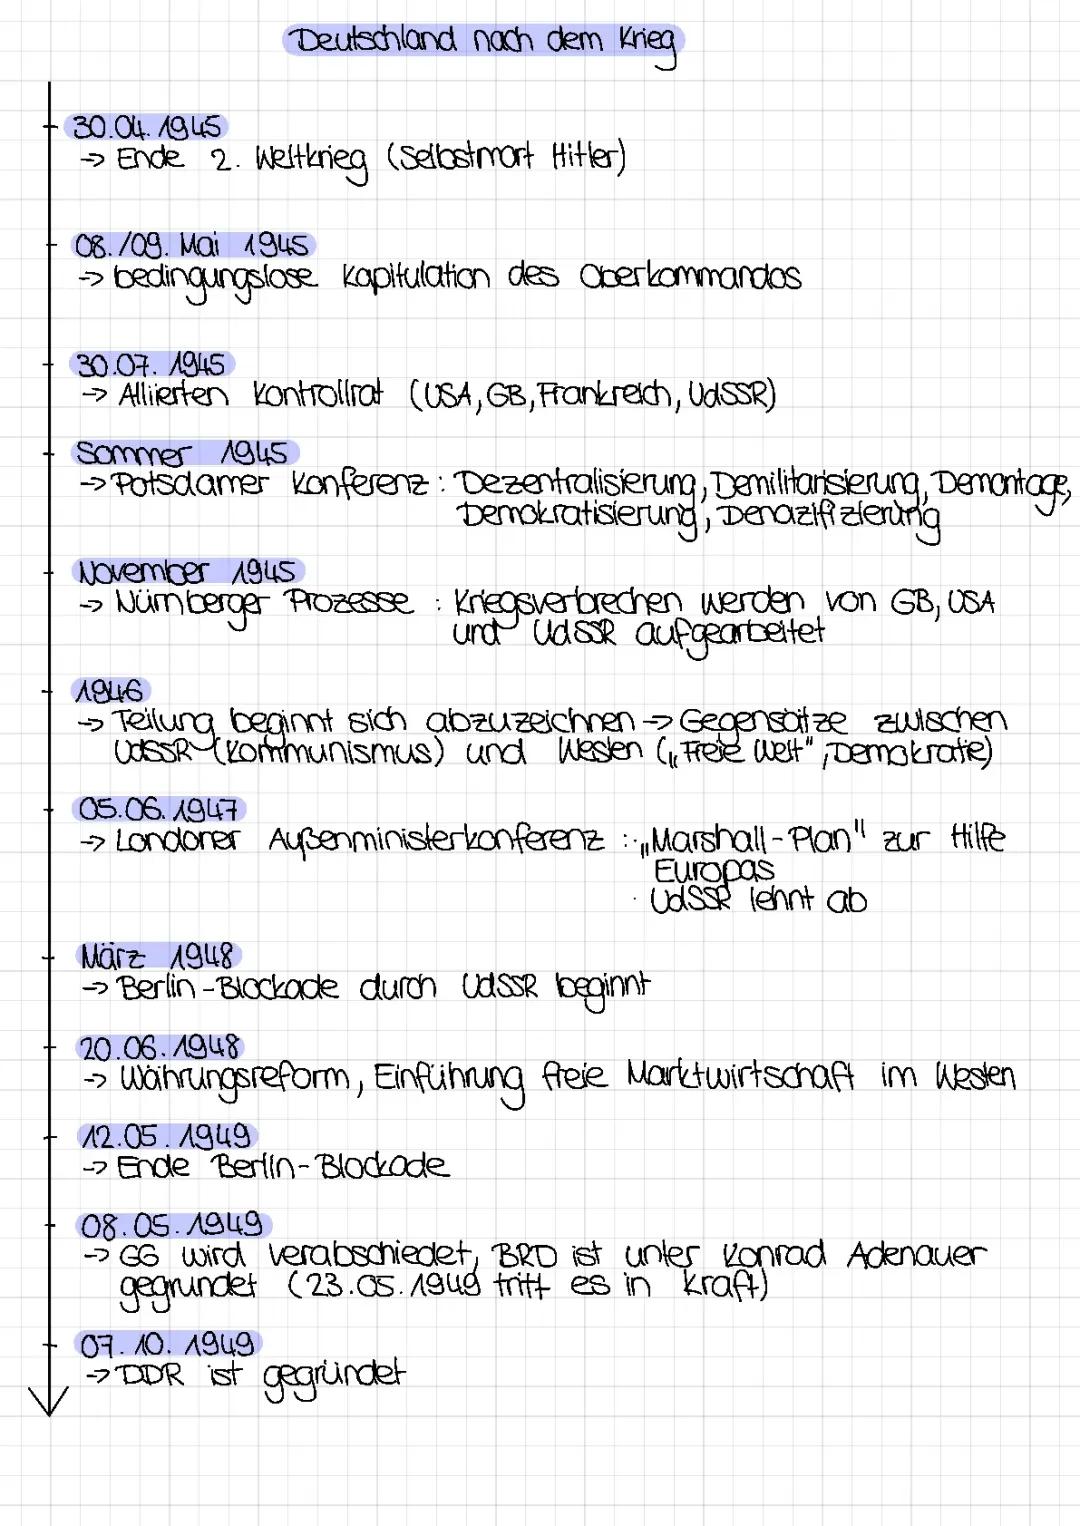 Deutschland nach dem Krieg
30.04.1945
→ Ende 2. Weltkrieg (Selbstmort Hitler)
08./09. Mai 1945
→ bedingungslose Kapitulation des Oberkommandos
30.07.1945
→ Alliierten Kontrollrat (USA, GB, Frankreich, UdSSR)
Sommer 1945
→ Potsdamer Konferenz: Dezentralisierung, Demilitarisierung, Demontage,
Demokratisierung, Denazifizierung
November 1945
→ Nürnberger Prozesse: Kriegsverbrechen werden von GB, USA
und UdSSR aufgearbeitet
1946
→ Teilung beginnt sich abzuzeichnen → Gegensätze zwischen
UdSSR (Kommunismus) und Westen („Freie Welt", Demokratie)
05.06.1947
→ Londoner Außenministerkonferenz: · „Marshall-Plan" zur Hilfe
Europas
· UdSSR lehnt ab
März 1948
→ Berlin-Blockade durch UdSSR beginnt
20.06.1948
→ Währungsreform, Einführung freie Marktwirtschaft im Westen
12.05.1949
→ Ende Berlin-Blockade
08.05.1949
→ GG wird verabschiedet, BRD ist unter Konrad Adenauer
gegründet (23.05.1949 tritt es in Kraft)
07.10.1949
→ DDR ist gegründet